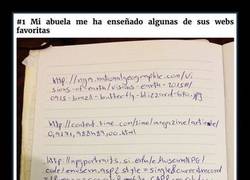 #1 Mi abuela me ha enseñado algunas de sus webs
favoritas
http://ngm.nationalgeographic.com/vi
sions-of-earth/visions-earth-2015#/
0915-brazil-butterfly-blizzard-670.jpg
http://content.time.com/time/magazine/article/
0,9171,982429,00.html
http://npgportraits.si.edu/eMuseumNPG/
code/emuseum.asp?style=single&currentrecord